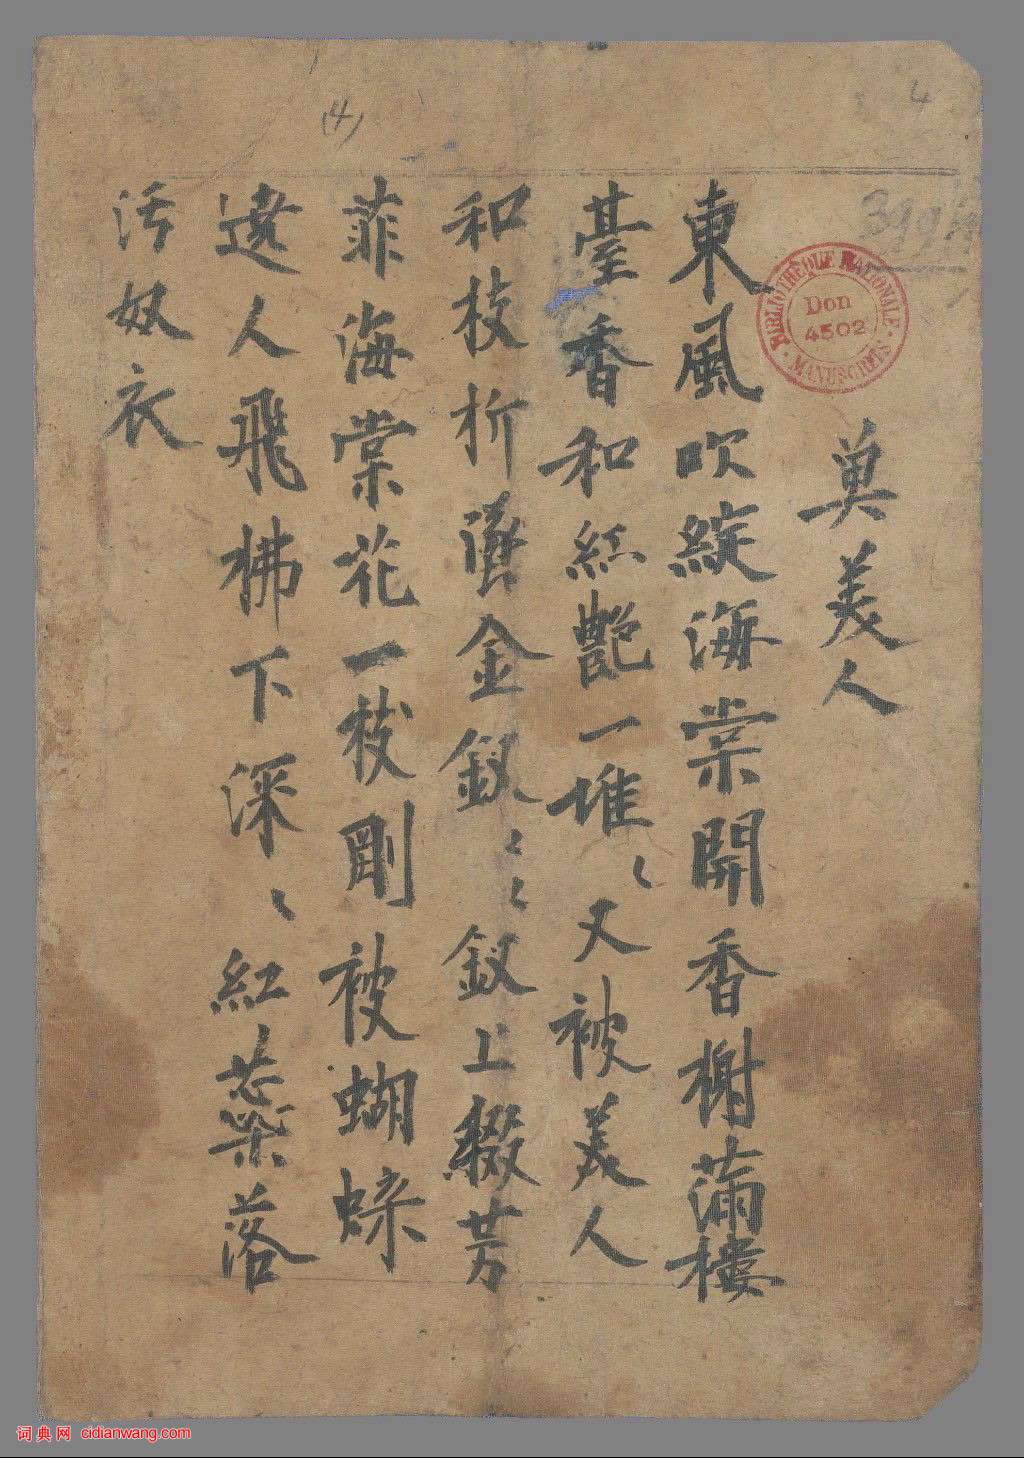 4
(4)
BIBLIOTHEQUE NATIONALE
Don
4502
MANUSCRITS
虞美人
東風吹綻海棠開香榭滿樓
臺香和紅艷一堆〻又被美人
和枝折墜金釵〻〻釵上綴芳
菲海棠花一枝剛被蝴蝶
遶人飛拂下深〻紅蕊落
污奴衣
词典网 cidianwang.com